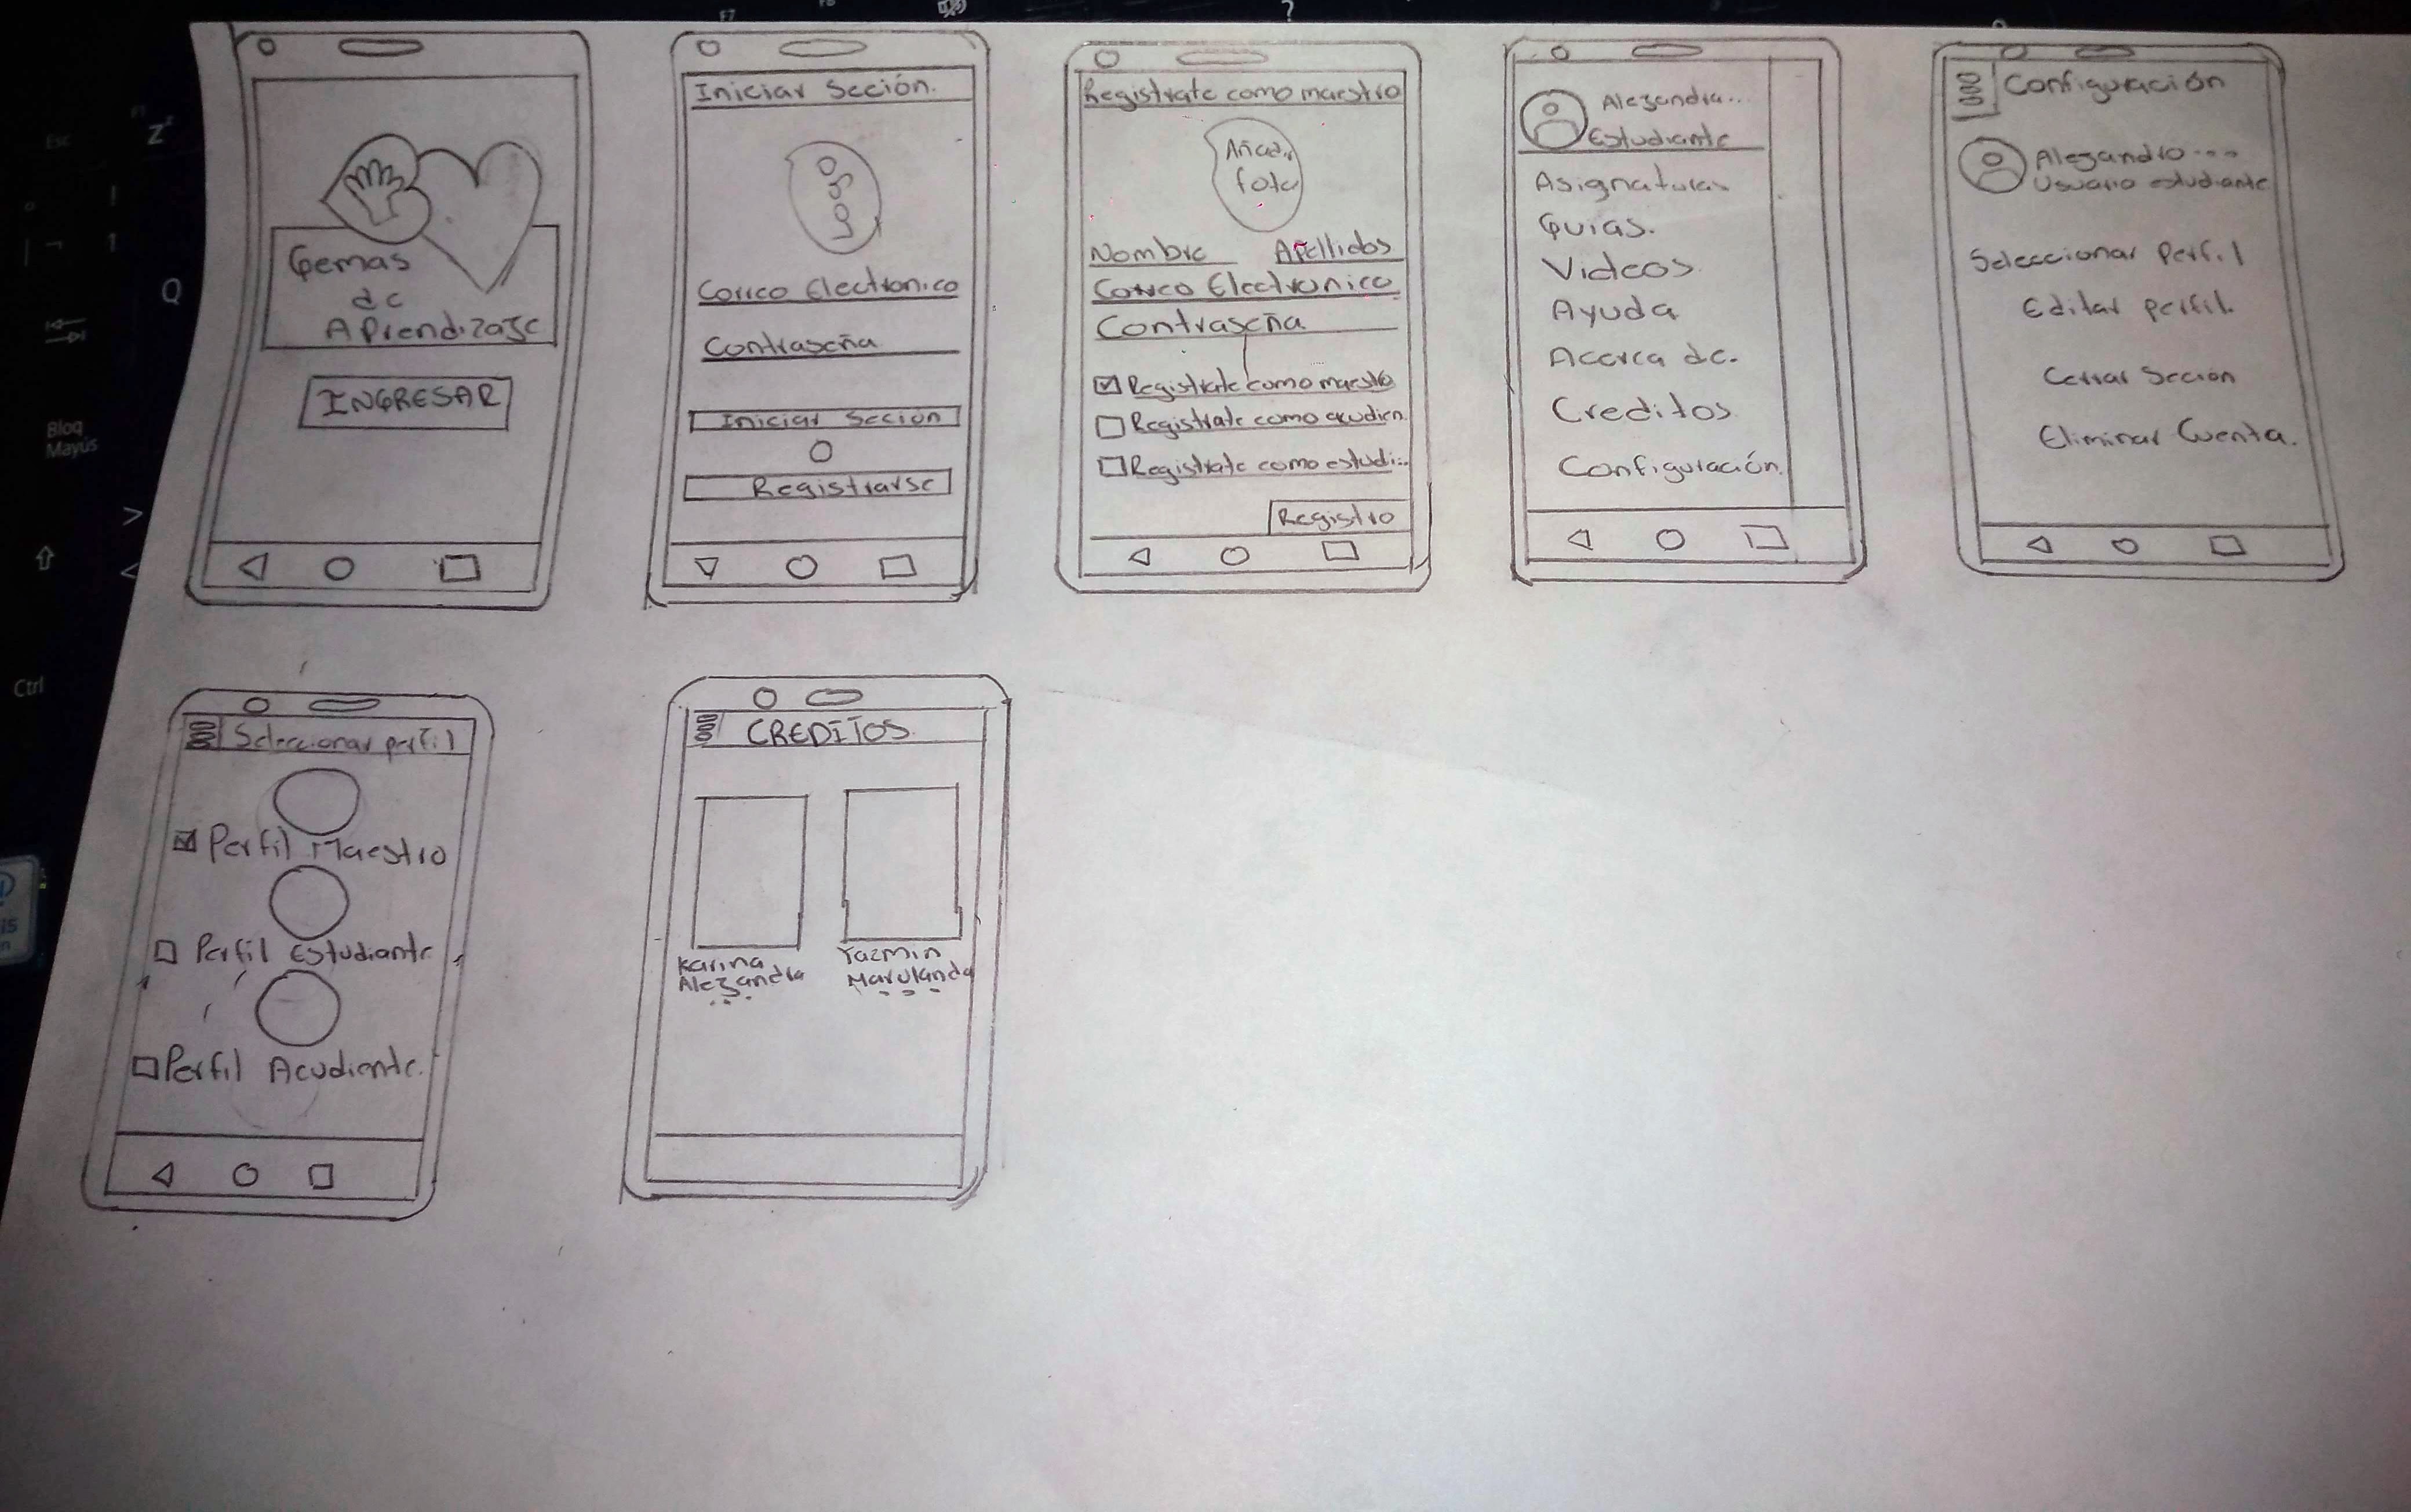 Gemas
de
Aprendizaje
INGRESAR
Iniciar Sección.
Logo
Correo Electronico
Contraseña
Iniciar Sección
O
Registrarse
Registrate como maestro
Añadir
foto
Nombre Apellidos
Correo Electronico
Contraseña
Registrate como maestro
Registrate como acudien.
Registrate como estudi...
Registro
Alejandra...
Estudiante
Asignaturas
Guias.
Videos
Ayuda
Acerca de.
Creditos
Configuración
Configuración
Alejandro...
Usuario estudiante
Seleccionar Perfil
Editar perfil.
Cerrar Sección
Eliminar Cuenta.
Seleccionar perfil
Perfil Maestro
Perfil Estudiante
Perfil Acudiente.
CREDITOS
Karina
Alejandra
...
Yazmin
Marulanda
...
F7
?
Esc
Z
Q
Bloq
Mayús
>
<
Ctrl